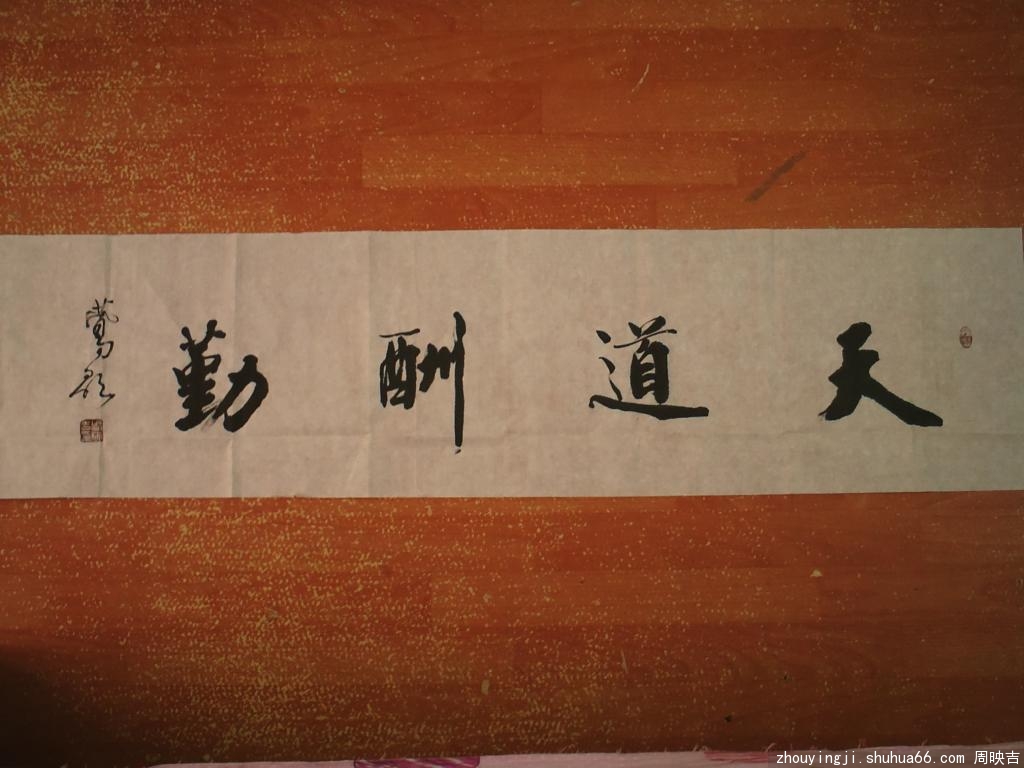 天道酬勤
zhouyingji.shuhua66.com 周映吉